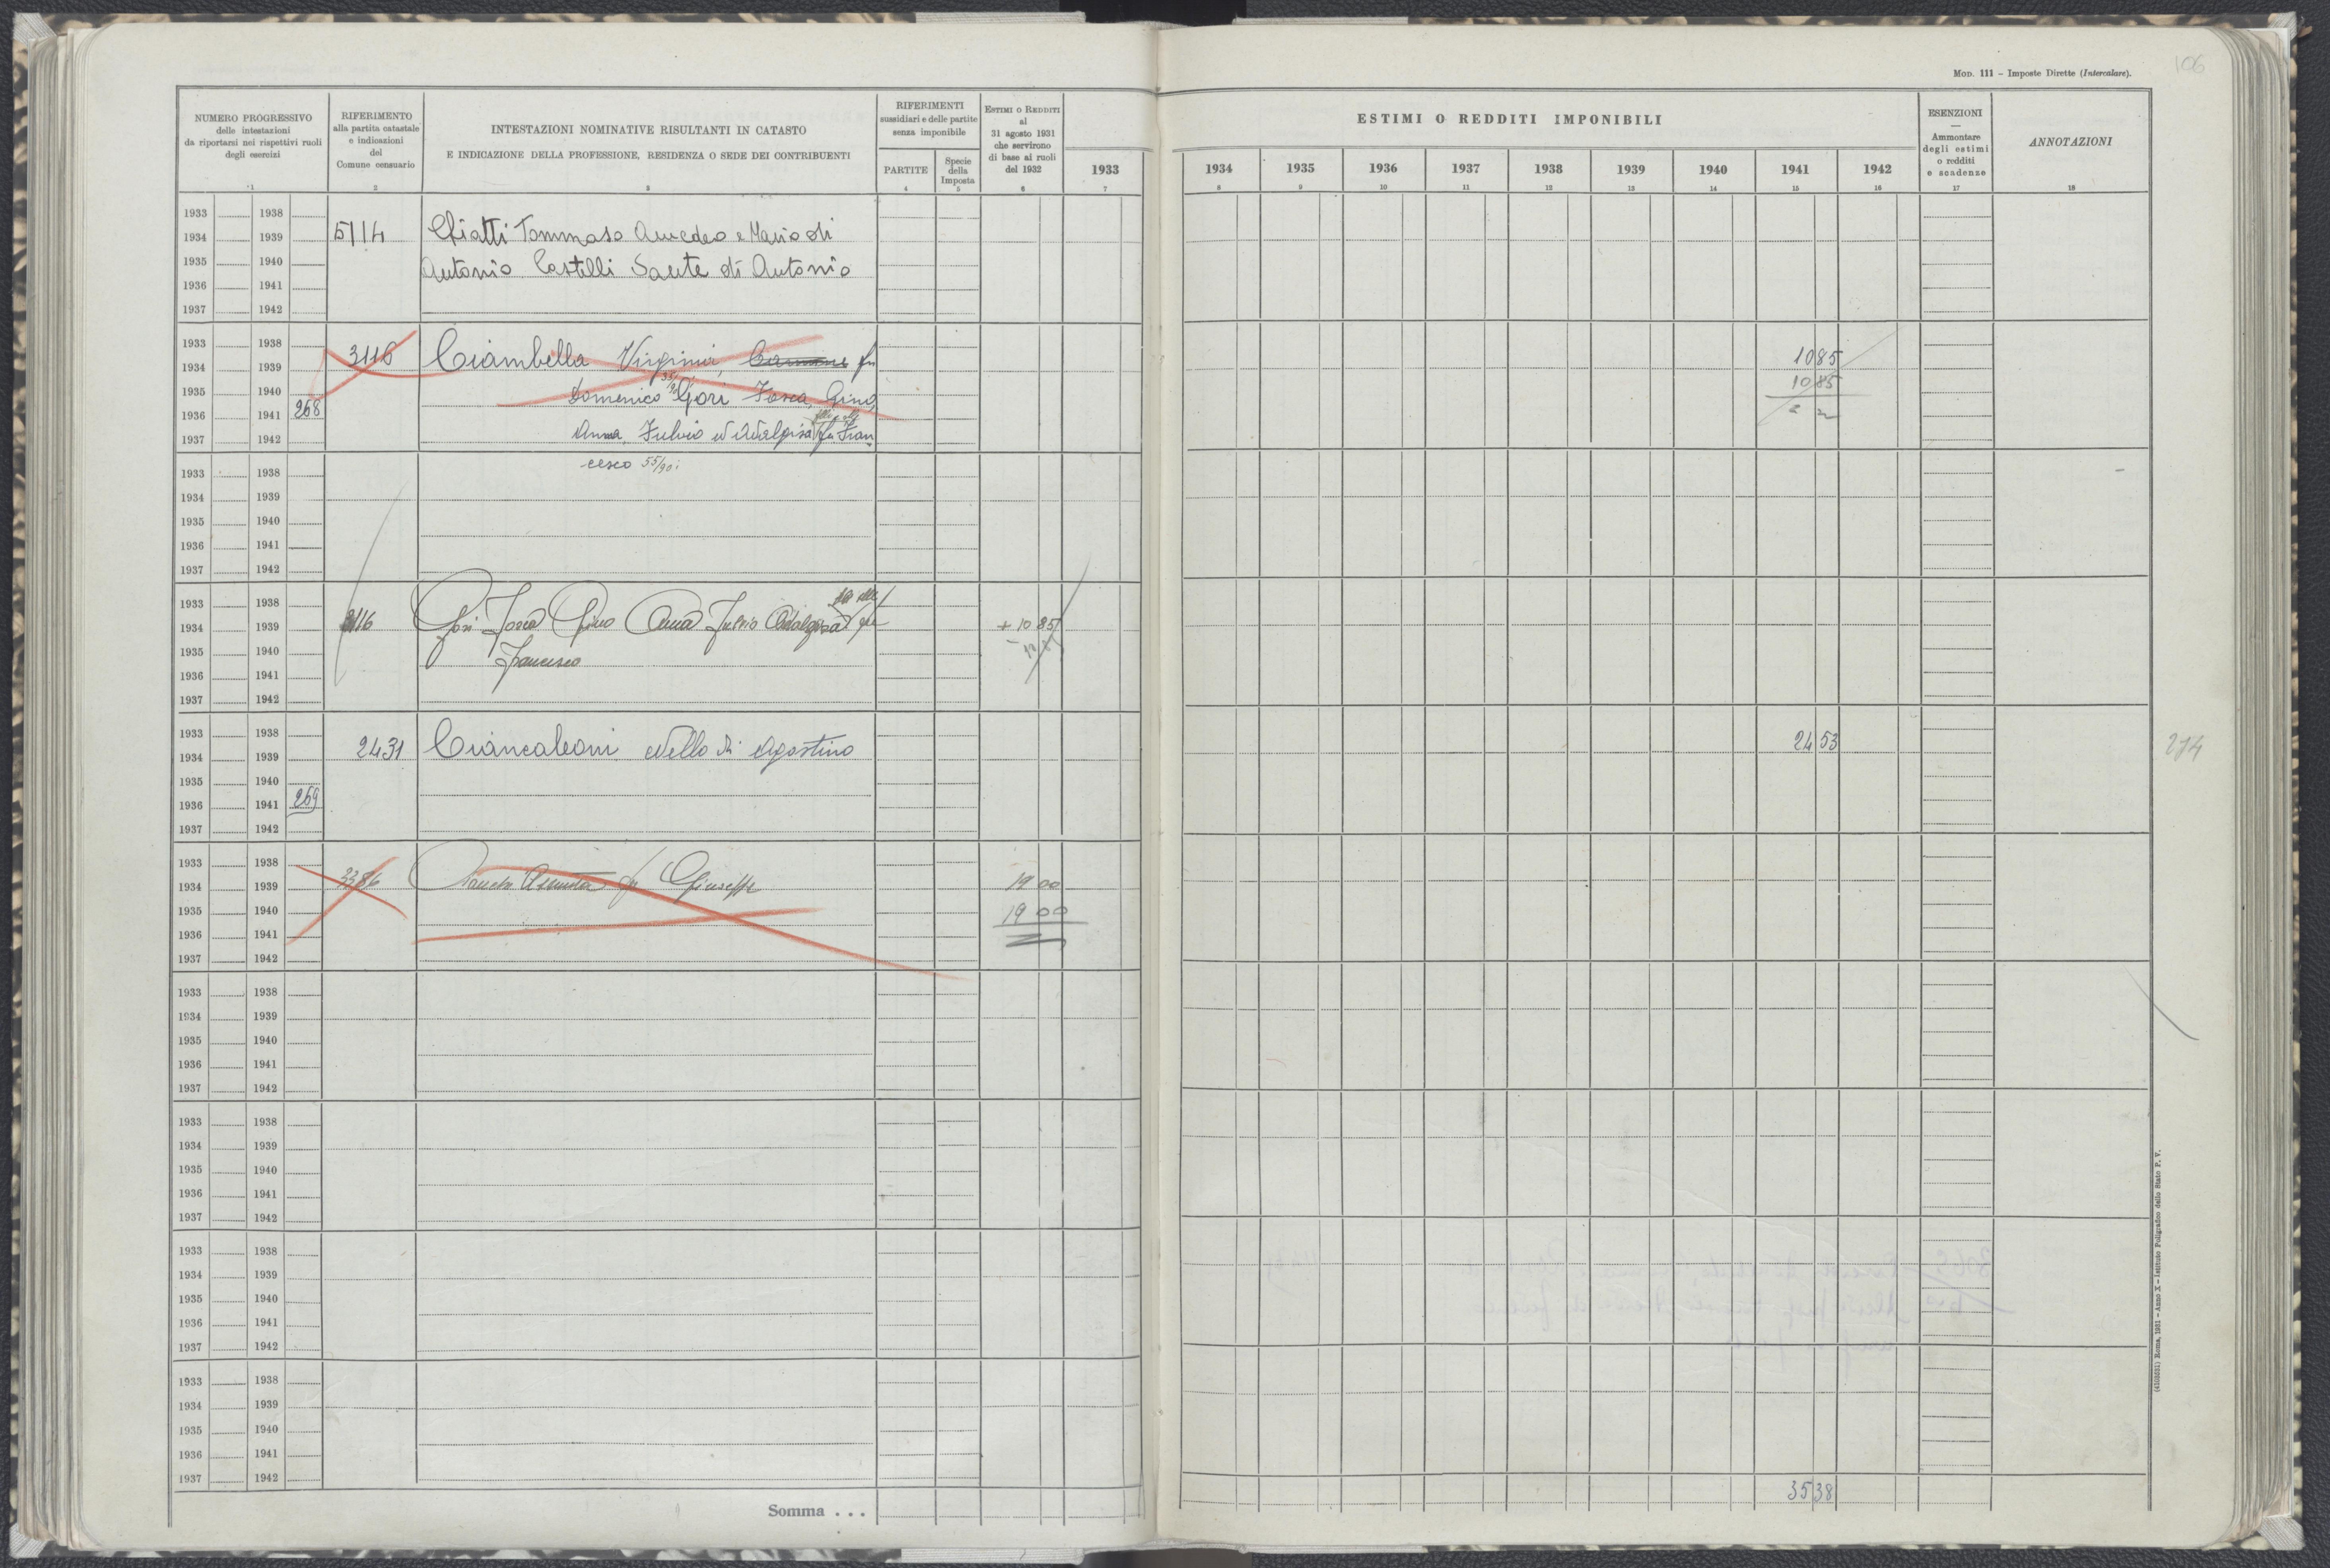 MOD. 111 – Imposte Dirette (Intercalare).
106
NUMERO PROGRESSIVO
delle intestazioni
da riportarsi nei rispettivi ruoli
degli esercizi
1
RIFERIMENTO
alla partita catastale
e indicazioni
del
Comune censuario
2
INTESTAZIONI NOMINATIVE RISULTANTI IN CATASTO
E INDICAZIONE DELLA PROFESSIONE, RESIDENZA O SEDE DEI CONTRIBUENTI
3
RIFERIMENTI
sussidiari e delle partite
senza imponibile
PARTITE
4
Specie
della
Imposta
5
ESTIMI O REDDITI
al
31 agosto 1931
che servirono
di base ai ruoli
del 1932
6
1933
7
ESTIMI O REDDITI IMPONIBILI
1934 1935 1936 1937 1938 1939 1940 1941 1942
8 9 10 11 12 13 14 15 16
ESENZIONI
—
Ammontare
degli estimi
o redditi
e scadenze
17
ANNOTAZIONI
18
1933 1938
1934 1939 5114 Tommaso Amedeo e Mario di
1935 1940 Antonio Castelli Sante di Antonio
1936 1941
1937 1942
1933 1938
1934 1939 3116 Ciambella Virginia, fu 1085
1935 1940 Domenico Gori Fosca, Gino, 1085
1936 1941 268
1937 1942 Anna, Fulvio ed Adalgisa fu Fran
1933 1938 cesco 55/90
1934 1939
1935 1940
1936 1941
1937 1942
1933 1938
1934 1939 3116 Gori Fosca Gino Anna Fulvio Adalgisa fu + 1085
1935 1940 Francesco
1936 1941
1937 1942
1933 1938
1934 1939 2431 Ciancaleoni Nello di Agostino 2453 274
1935 1940
1936 1941 269
1937 1942
1933 1938
1934 1939 3386 Assunta fu Giuseppe 1900
1935 1940 1900
1936 1941
1937 1942
1933 1938
1934 1939
1935 1940
1936 1941
1937 1942
1933 1938
1934 1939
1935 1940
1936 1941
1937 1942
1933 1938
1934 1939
1935 1940
1936 1941
1937 1942
1933 1938
1934 1939
1935 1940
1936 1941
1937 1942
Somma . . . 3538
Roma, 1931 – Anno X – Istituto Poligrafico dello Stato P. V.